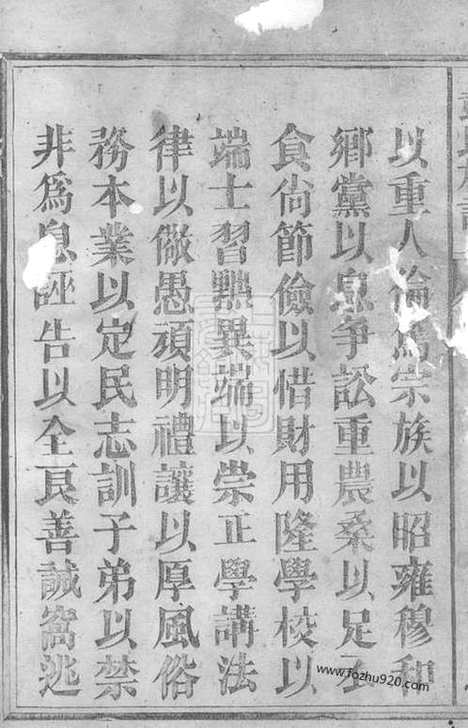 以重人倫篤宗族以昭雍穆和
鄉黨以息爭訟重農桑以足衣
食尙節儉以惜財用隆學校以
端士習黜異端以崇正學講法
律以儆愚頑明禮讓以厚風俗
務本業以定民志訓子弟以禁
非爲息誣告以全良善誡窩逃
www.fozhu920.com